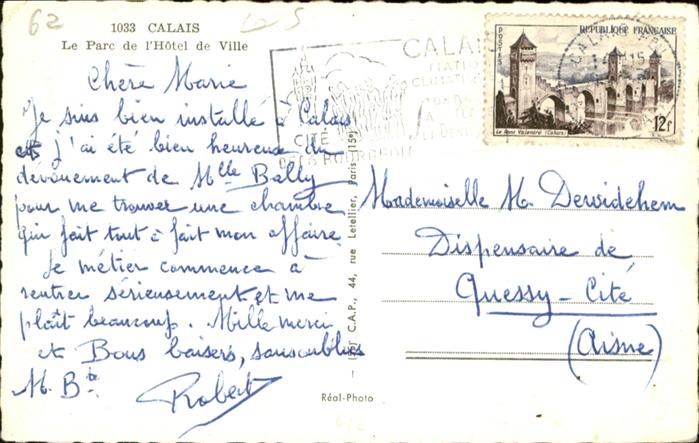 62
1033 CALAIS
Le Parc de l'Hôtel de Ville
Chère Marie
Je suis bien installé à Calais
et j'ai été bien heureux du
dévouement de Mlle Bally
pour me trouver une chambre
qui fait tout à fait mon affaire
Le métier commence à
rentrer sérieusement et me
plaît beaucoup. Mille merci
et Bons baisers, sans oublier
M. B
Robert
(75) C.A.P., 44, rue Letellier, Paris (15e)
Réal-Photo
CALAIS
STATION
CLIMATIQUE
CITÉ
DES 6 BOURGEOIS
POSTES
REPUBLIQUE FRANÇAISE
Le Pont Valentré (Cahors)
12F
Mademoiselle M. Dewidehem
Dispensaire de
Quessy - Cité
(Aisne)